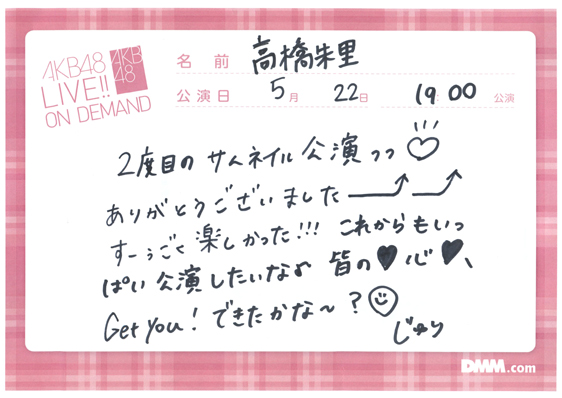 AKB48
LIVE!!
ON DEMAND
AKB
48
名前 高橋朱里
公演日 5月 22日 19:00 公演
2度目のサムネイル公演っっ♡
ありがとうございました
すーぅごく楽しかった!!! これからもいっ
ぱい公演したいなよ 皆の♥心♥、
Get you! できたかな〜?
じゅり
DMM.com